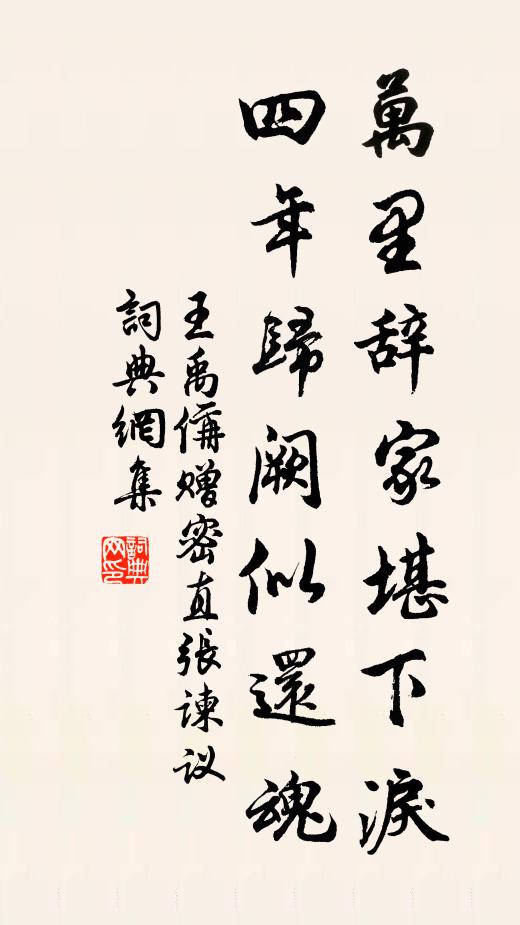 萬里辞家堪下淚
四年歸阙似還魂
王禹偁赠密直張諫议
詞典網集
詞典网印